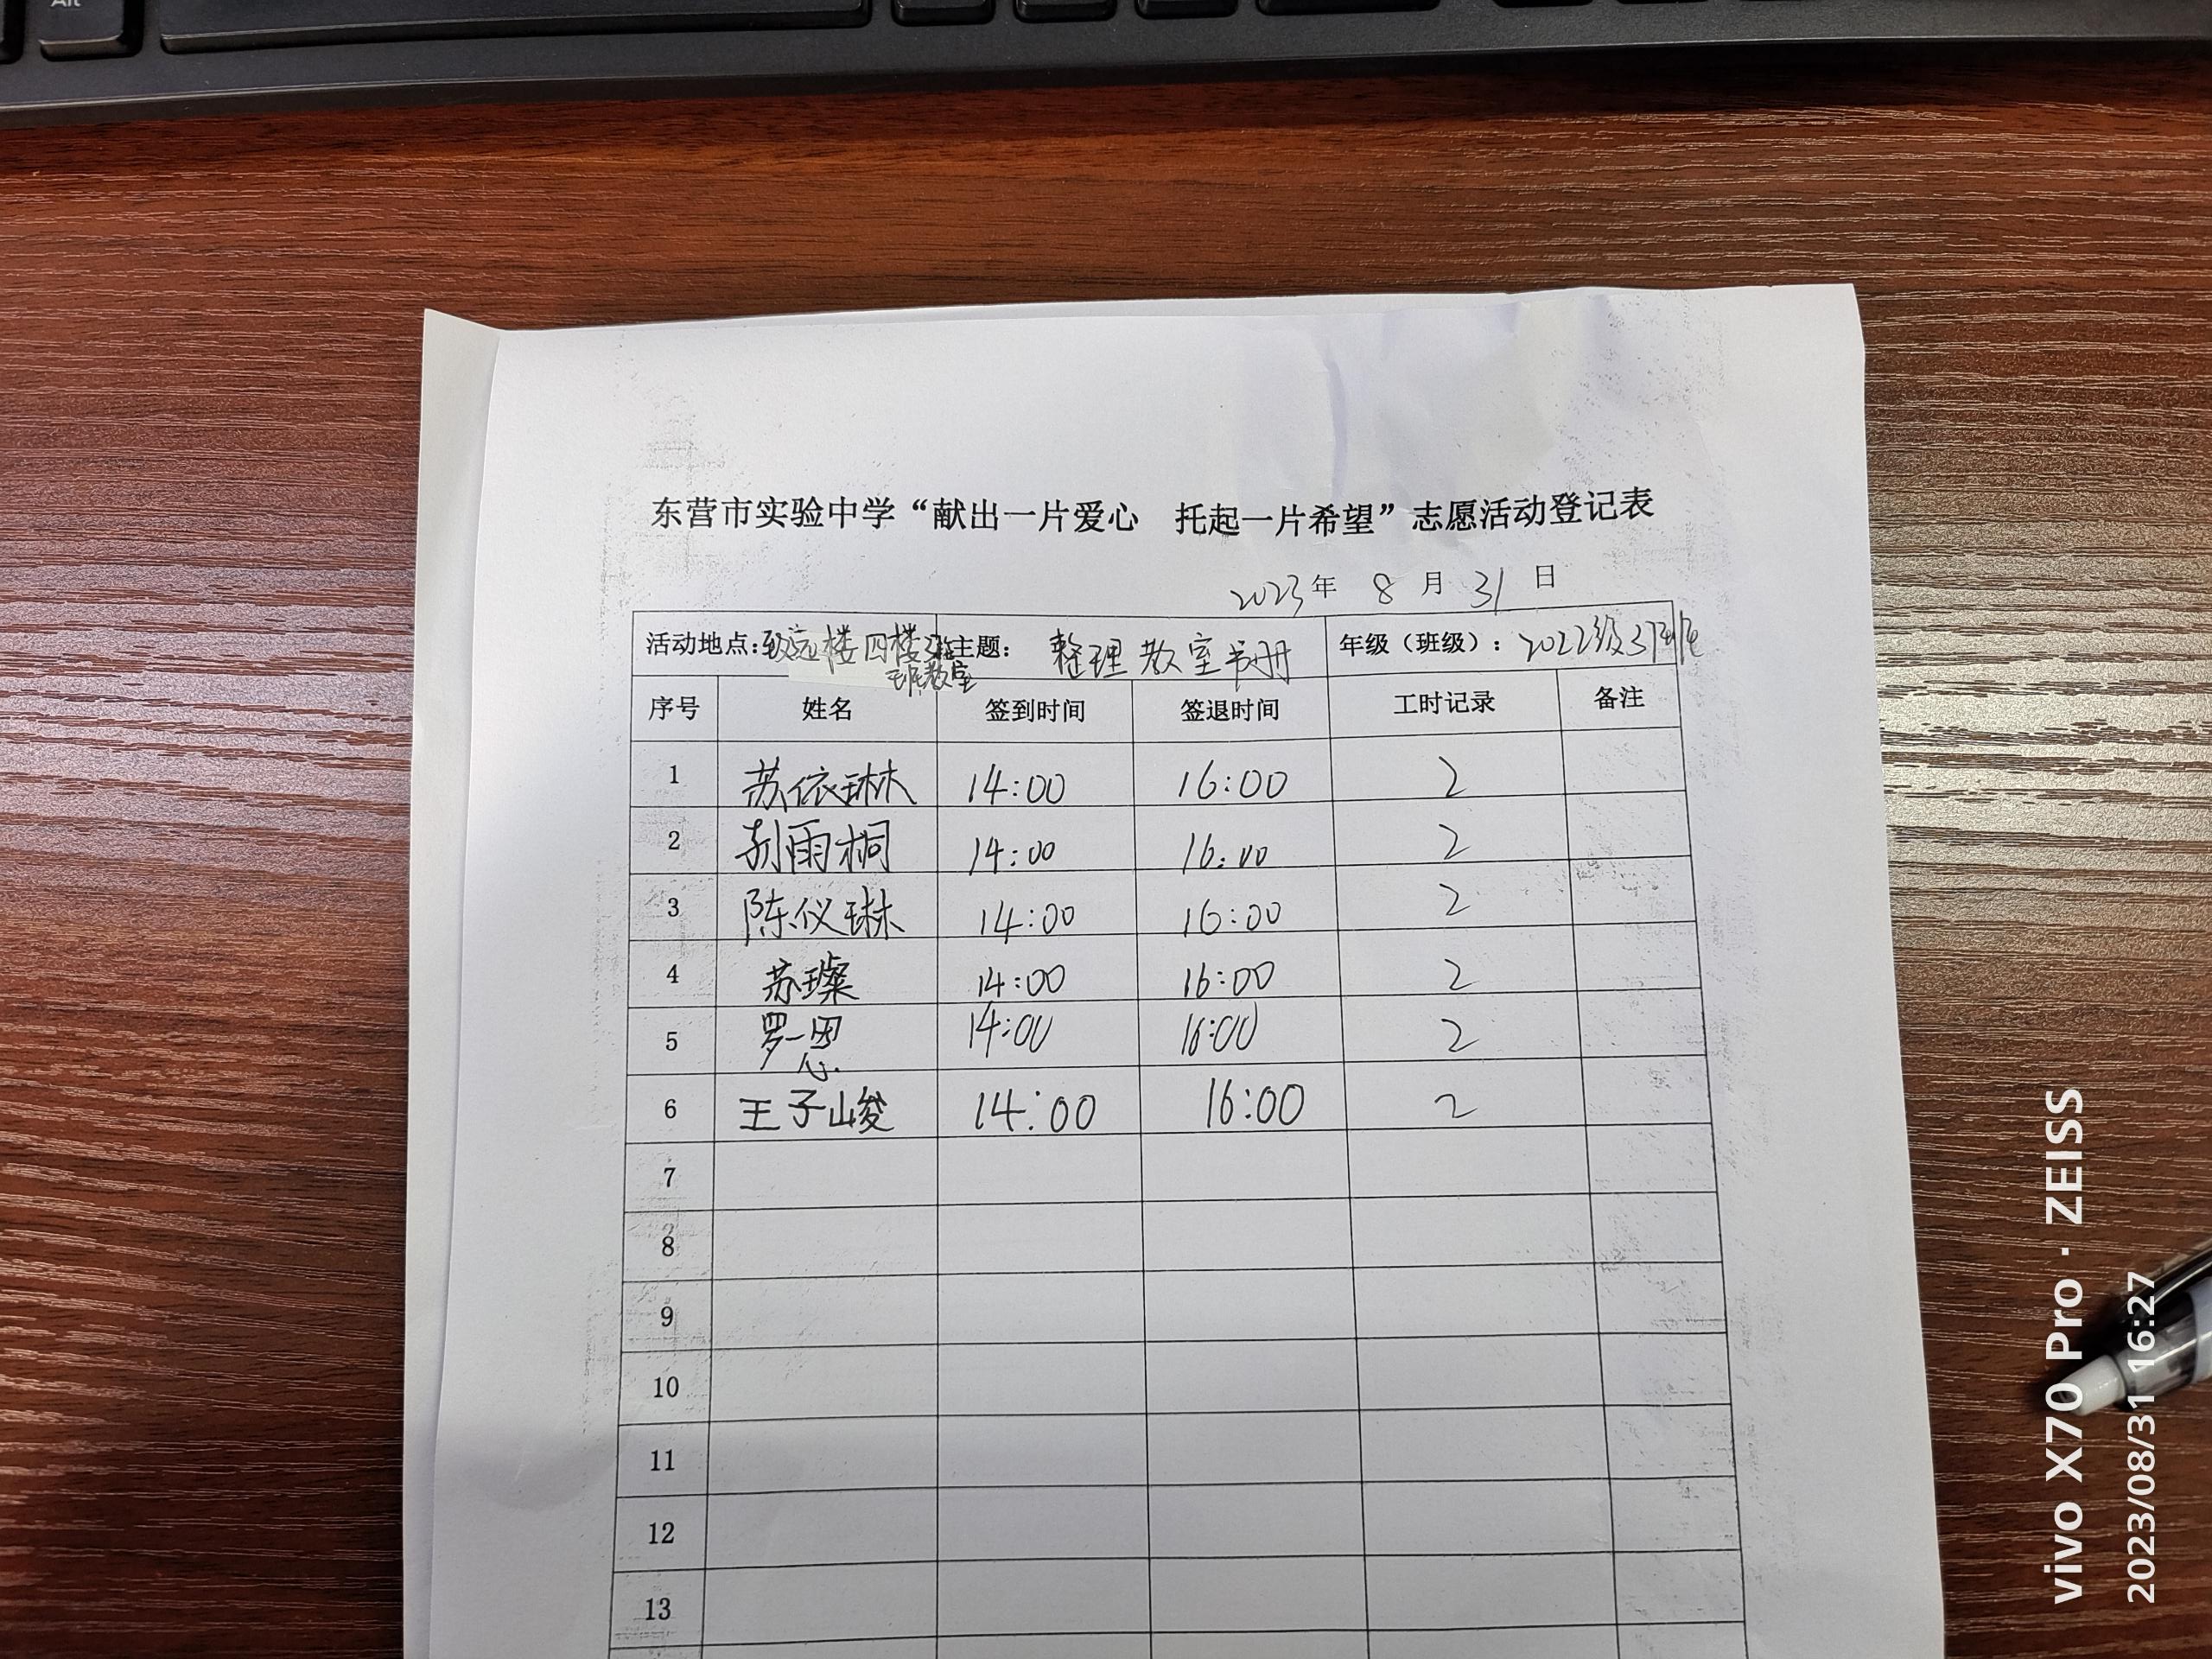 Alt
东营市实验中学“献出一片爱心 托起一片希望”志愿活动登记表
2023年 8 月 31 日
活动地点:致远楼四楼 班教室 主题: 整理教室书册 年级(班级): 2022级37班
序号 姓名 签到时间 签退时间 工时记录 备注
1 苏依琳 14:00 16:00 2
2 刘雨桐 14:00 16:00 2
3 陈仪琳 14:00 16:00 2
4 苏璨 14:00 16:00 2
5 罗一恩 14:00 16:00 2
6 王子峻 14:00 16:00 2
7
8
9
10
11
12
13
vivo X70 Pro · ZEISS
2023/08/31 16:27